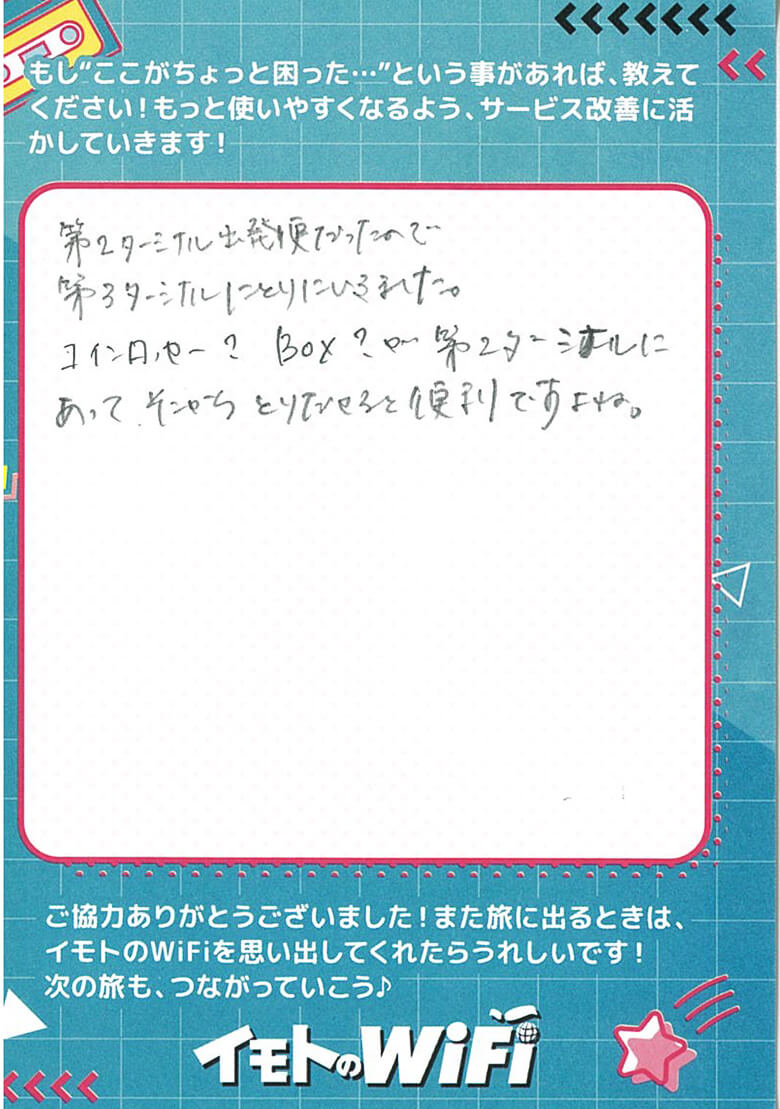 もし“ここがちょっと困った…”という事があれば、教えて
ください！もっと使いやすくなるよう、サービス改善に活
かしていきます！
第2ターミナル出発便だったので
第3ターミナルにとりにいきました。
コインロッカー？ BOX？が第2ターミナルに
あって そこから とりだせると便利ですよね。
ご協力ありがとうございました！また旅に出るときは、
イモトのWiFiを思い出してくれたらうれしいです！
次の旅も、つながっていこう♪
イモトのWiFi